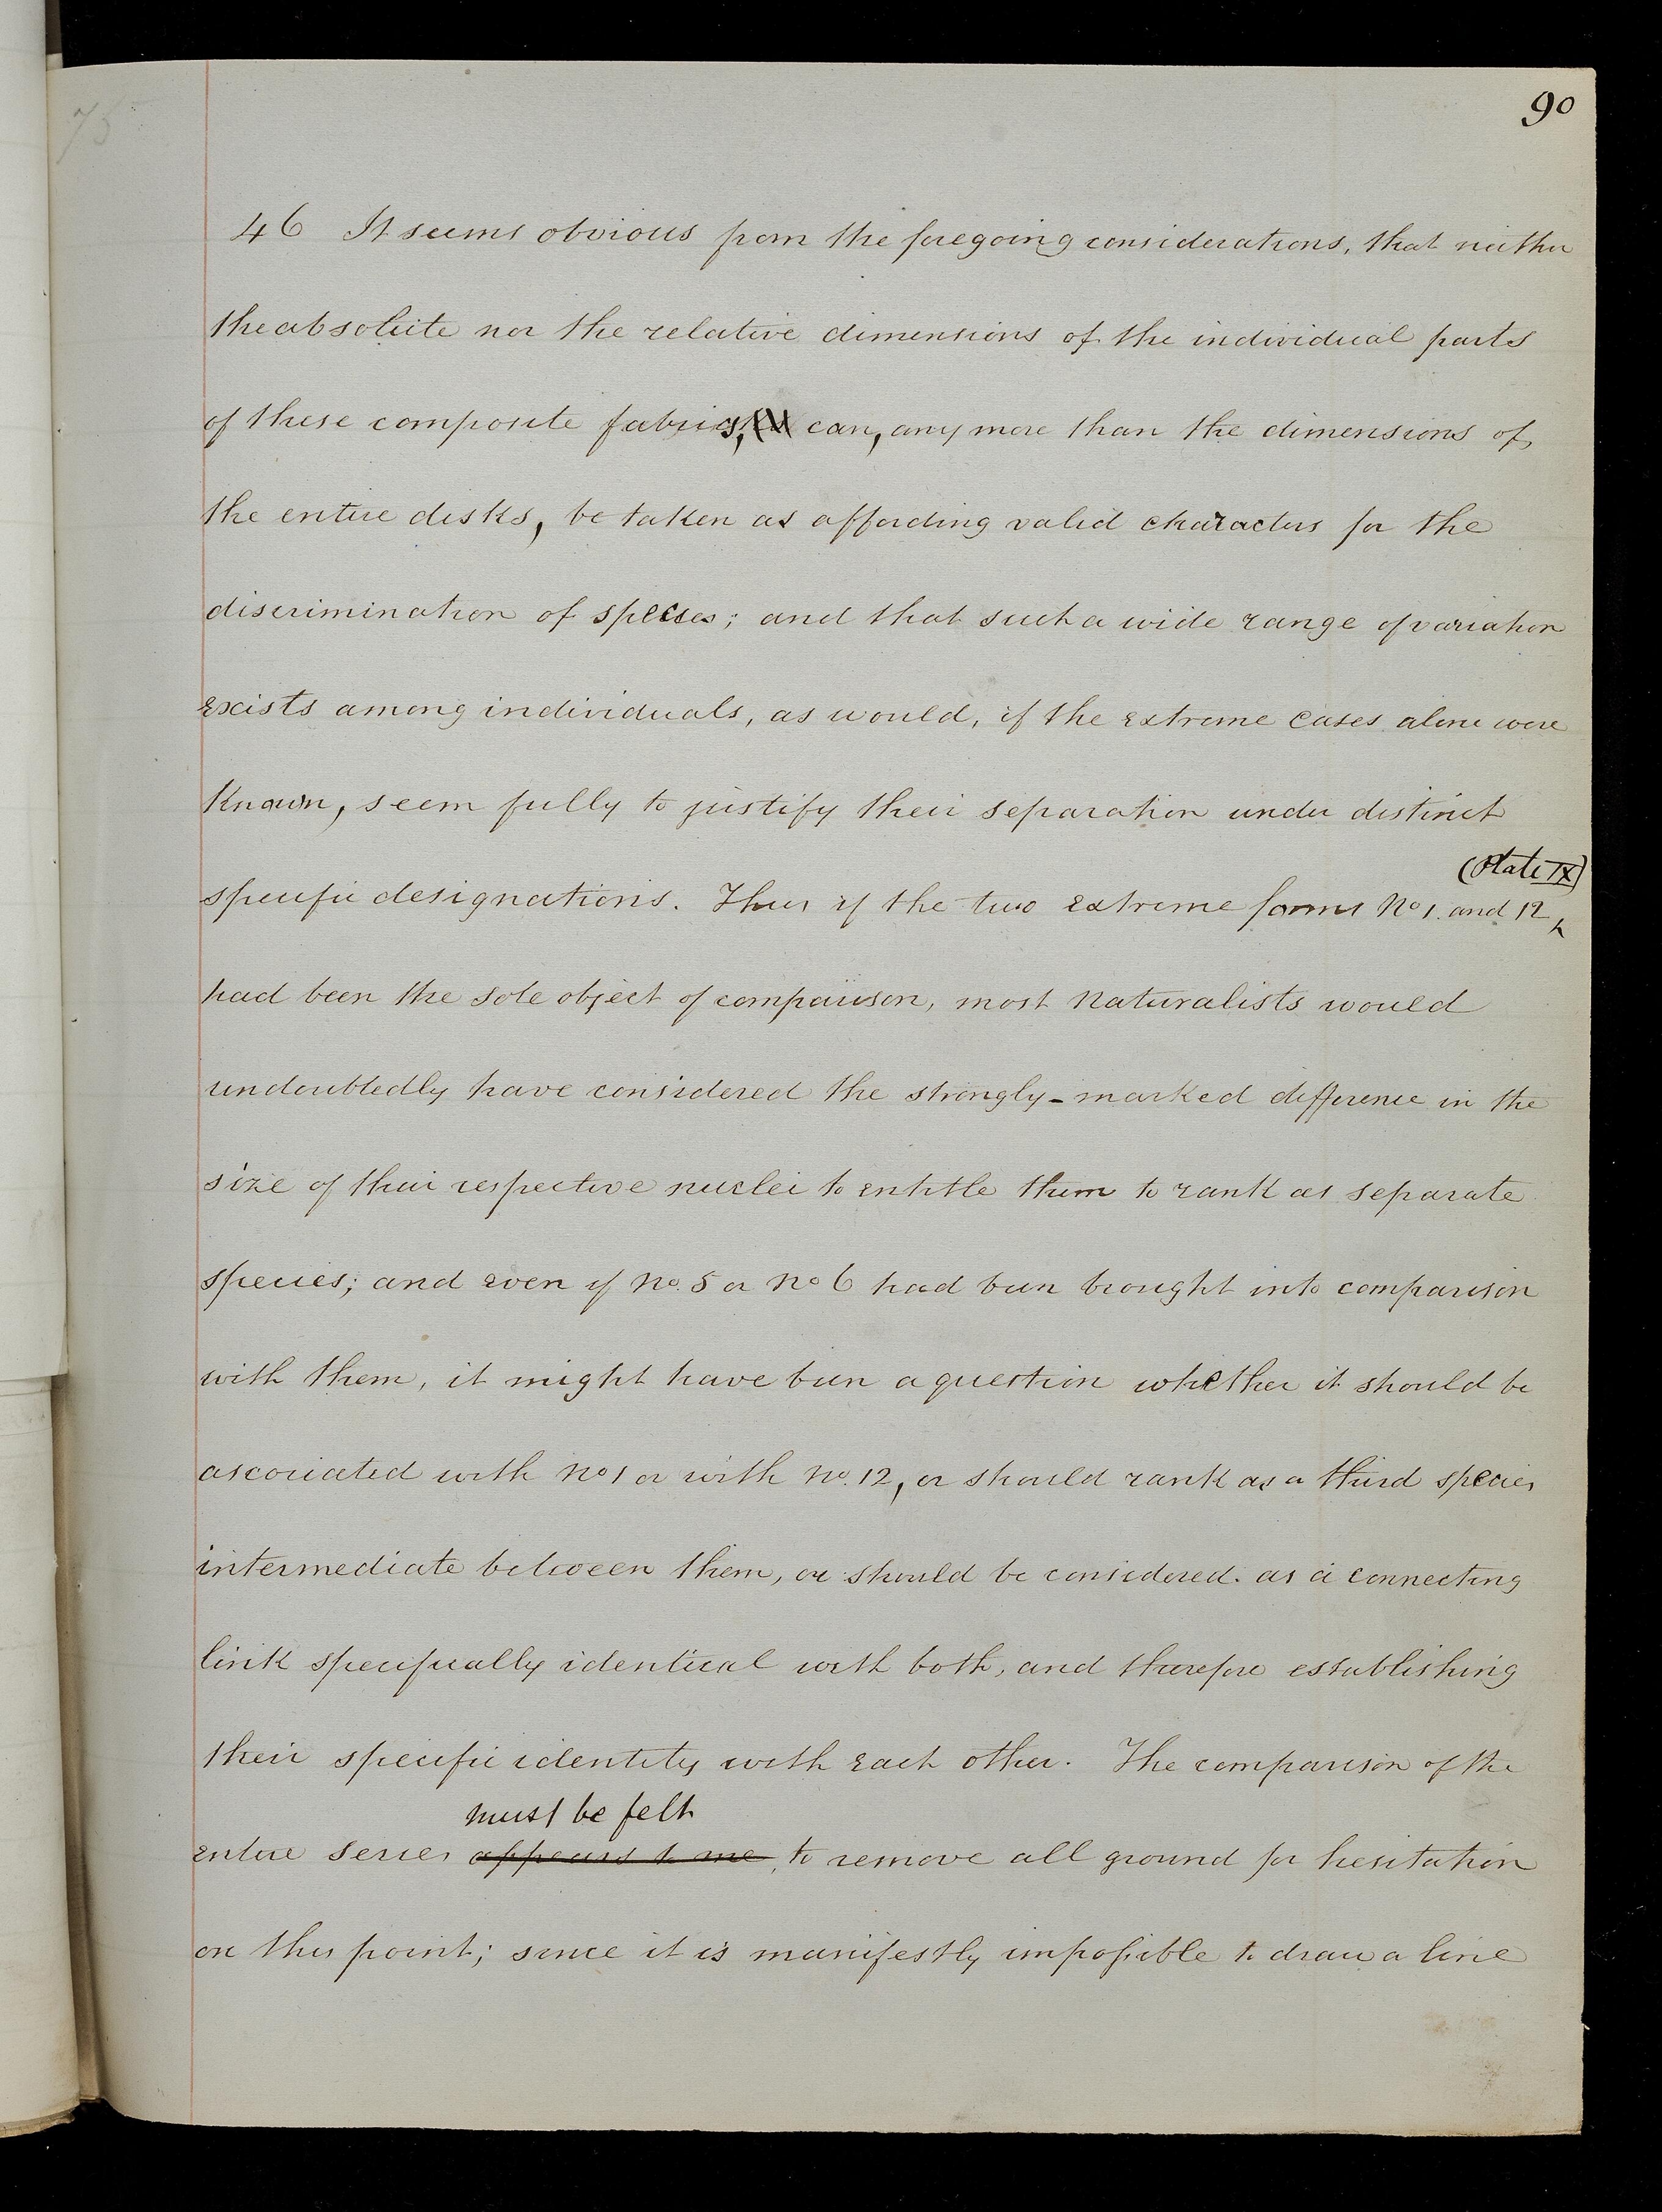 90
75
46 It seems obvious from the foregoing considerations, that neither
the absolute nor the relative dimensions of the individual parts
of these composite fabrics, can, any more than the dimensions of
the entire disks, be taken as affording valid characters for the
discrimination of species; and that such a wide range of variation
exists among individuals, as would, if the extreme cases alone were
known, seem fully to justify their separation under distinct
(Plate IX)
specific designations. Thus if the two extreme forms No 1. and 12
had been the sole object of comparison, most naturalists would
undoubtedly have considered the strongly-marked difference in the
size of their respective nuclei to entitle them to rank as separate
species; and even if No. 5 or No 6 had been brought into comparison
with them, it might have been a question whether it should be
associated with No 1 or with No. 12, or should rank as a third species
intermediate between them, or should be considered as a connecting
link specifically identical with both, and therefore establishing
their specific identity with each other. The comparison of the
must be felt
entire series appears to me, to remove all ground for hesitation
on this point; since it is manifestly impossible to draw a line